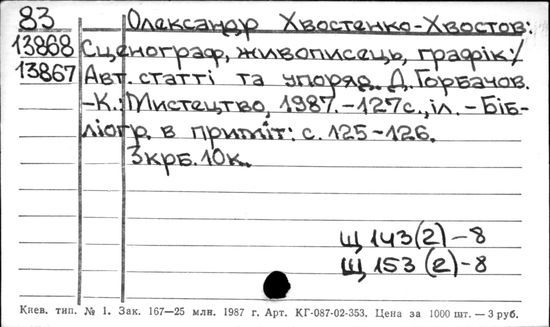 83 Олександр Хвостенко-Хвостов:
13868 Сценограф, живописець, графік:/
13867 Авт. статті та упоряд. Д. Горбачов.
-К.: Мистецтво, 1987.-127с., іл. - Біб-
ліогр. в приміт: с. 125-126.
3крб. 10к.
Щ 143(2)-8
Щ 153(2)-8
Киев. тип. № 1. Зак. 167—25 млн. 1987 г. Арт. КГ-087-02-353. Цена за 1000 шт. — 3 руб.